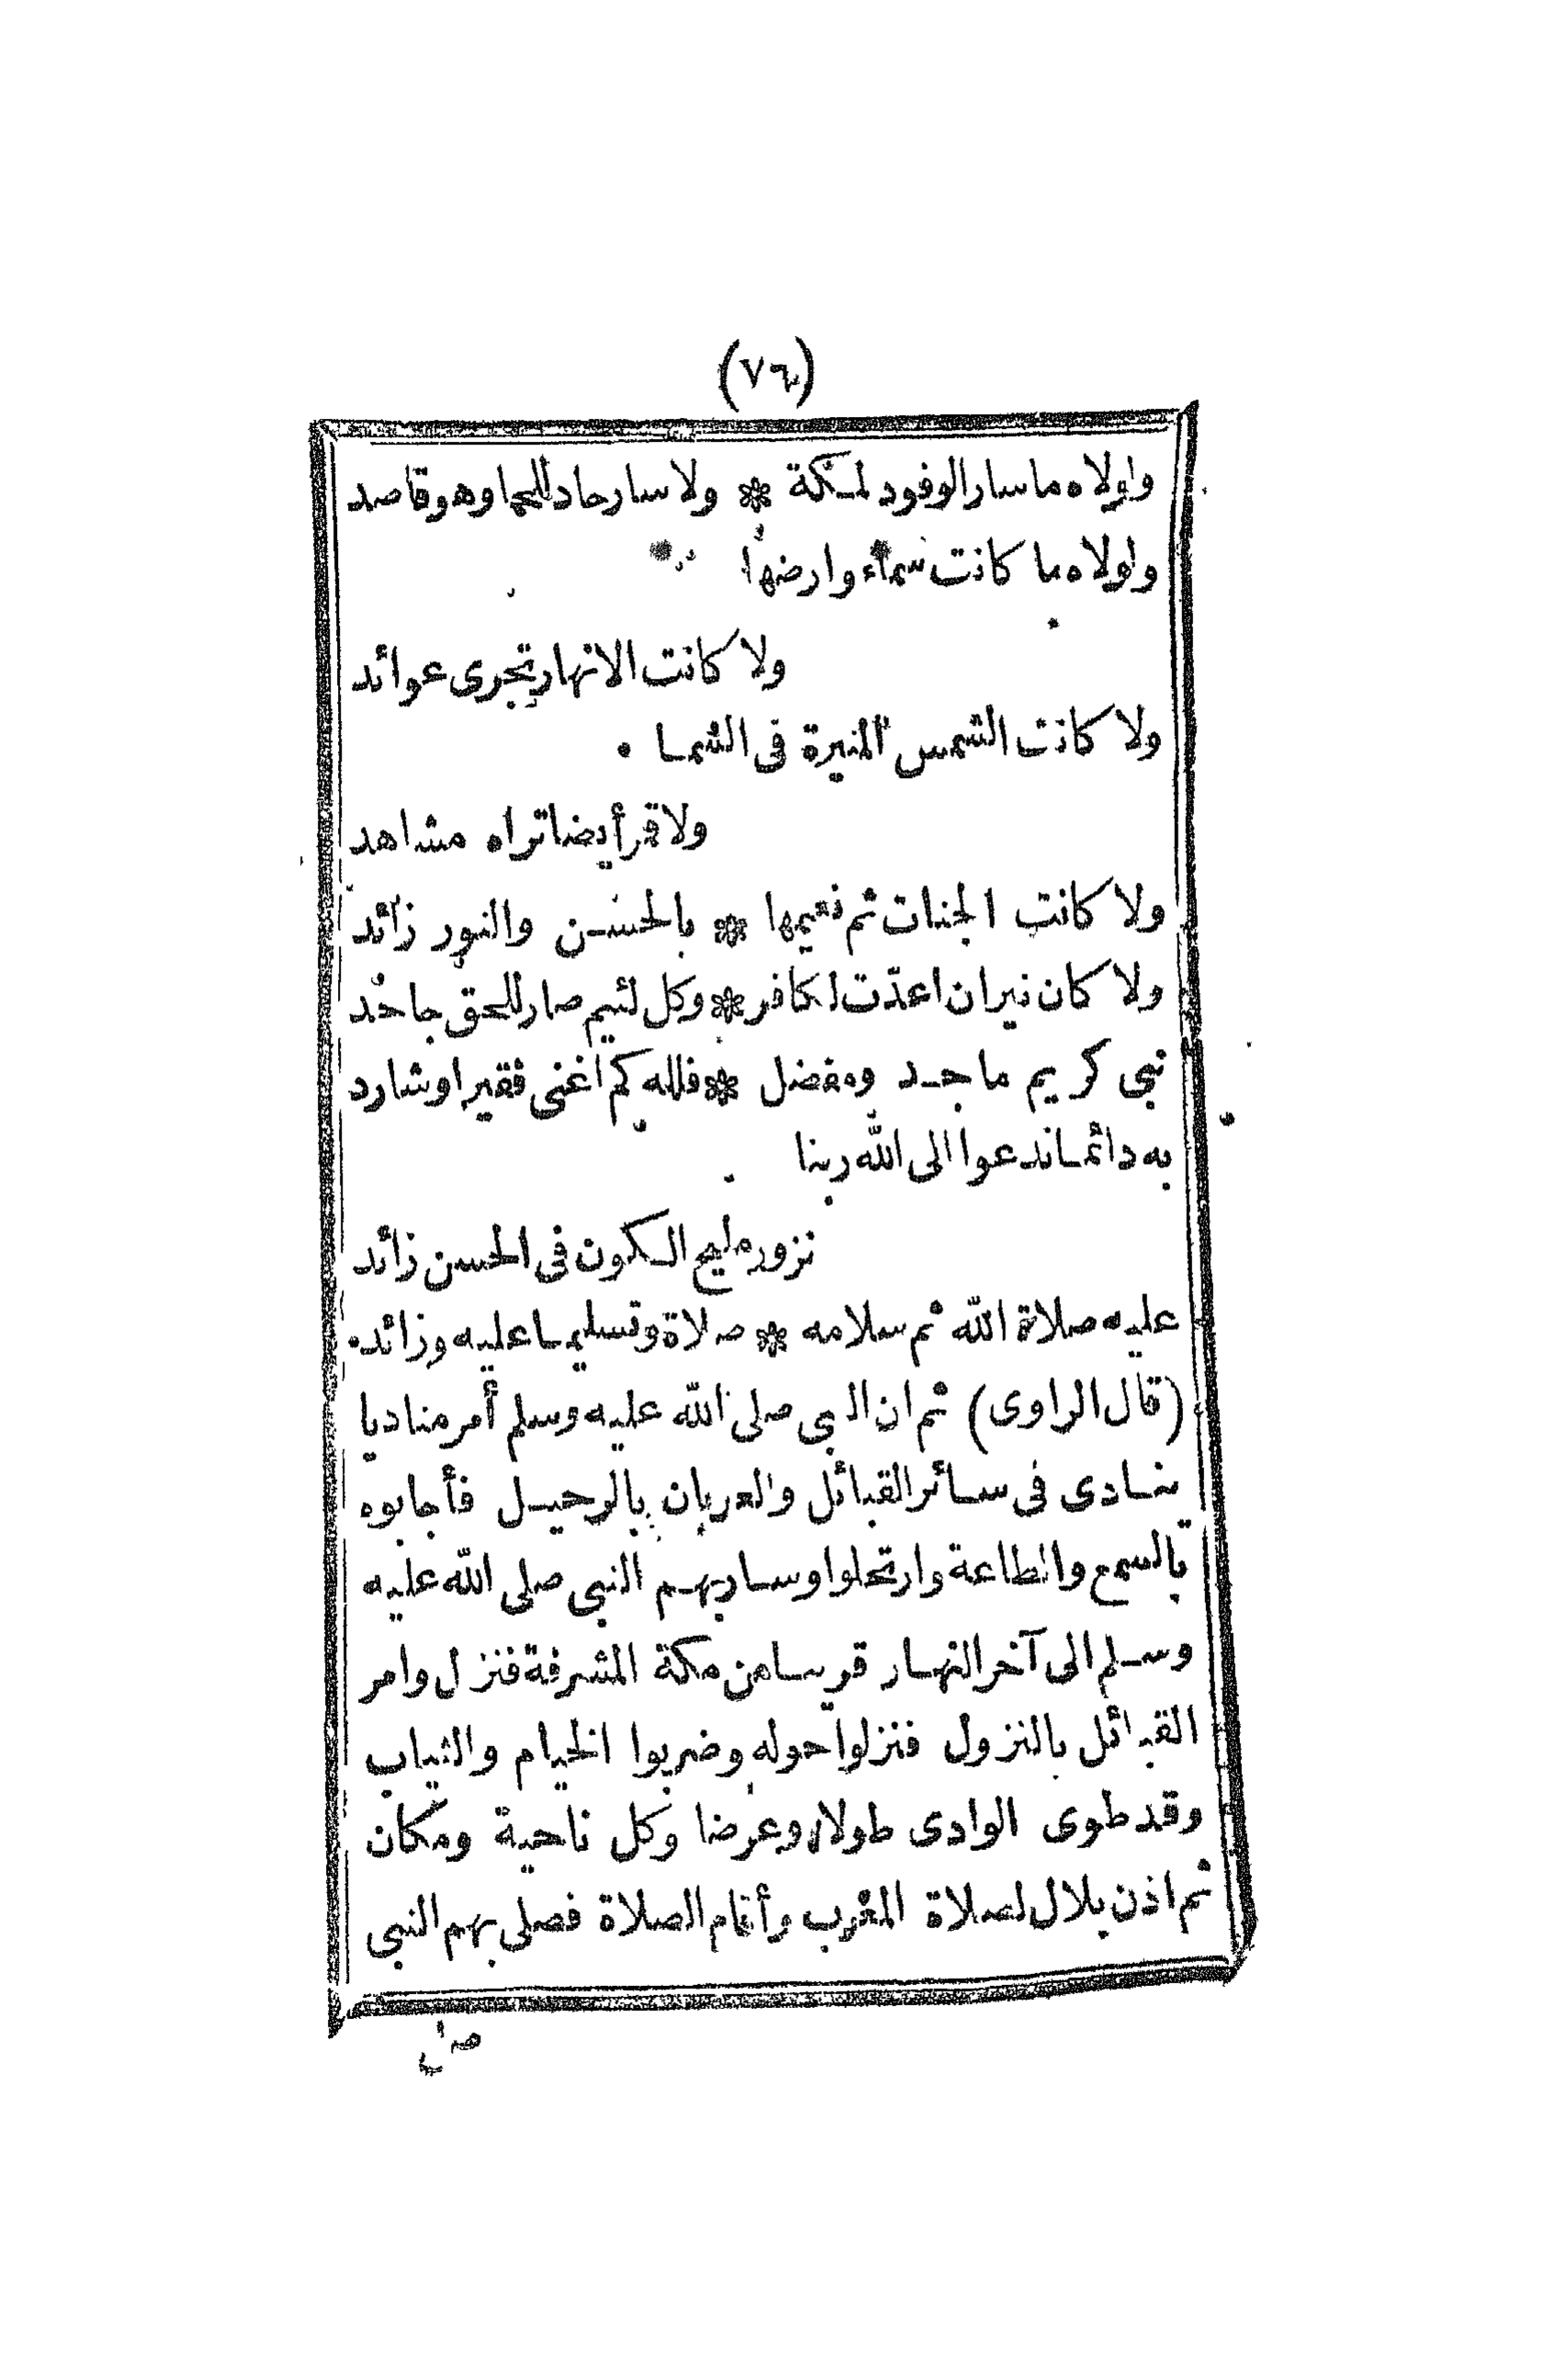 (٧٦)
ولولاه ماسار الوفود لمكة * ولا سار حاد للحما وهو قاصد
ولولاه ما كانت سماء وارضها
ولا كانت الانهار تجرى عوائد
ولا كانت الشمس المنيرة فى السما
ولا قمر أيضا تراه مشاهد
ولا كانت الجنات ثم نعيمها * بالحسن والنور زائد
ولا كان نيران اعدّت لكافر * وكل لئيم صار للحق جاحد
نبى كريم ماجد ومفضل * فلله كم اغنى فقير اوشارد
به دائما ندعوا الى الله ربنا
نزور مليح الكون فى الحسن زائد
عليه صلاة الله ثم سلامه * صلاة وتسليما عليه وزائد
(قال الراوى) ثم ان النبى صلى الله عليه وسلم أمر مناديا
ينادى فى سائر القبائل والعربان بالرحيل فأجابوه
بالسمع والطاعة وارتحلوا وسار بهم النبى صلى الله عليه
وسلم الى آخر النهار قريبا من مكة المشرفة فنزل وامر
القبائل بالنزول فنزلوا حوله وضربوا الخيام والثياب
وقد طوى الوادى طولا وعرضا وكل ناحية ومكان
ثم اذن بلال لصلاة المغرب وأقام الصلاة فصلى بهم النبى